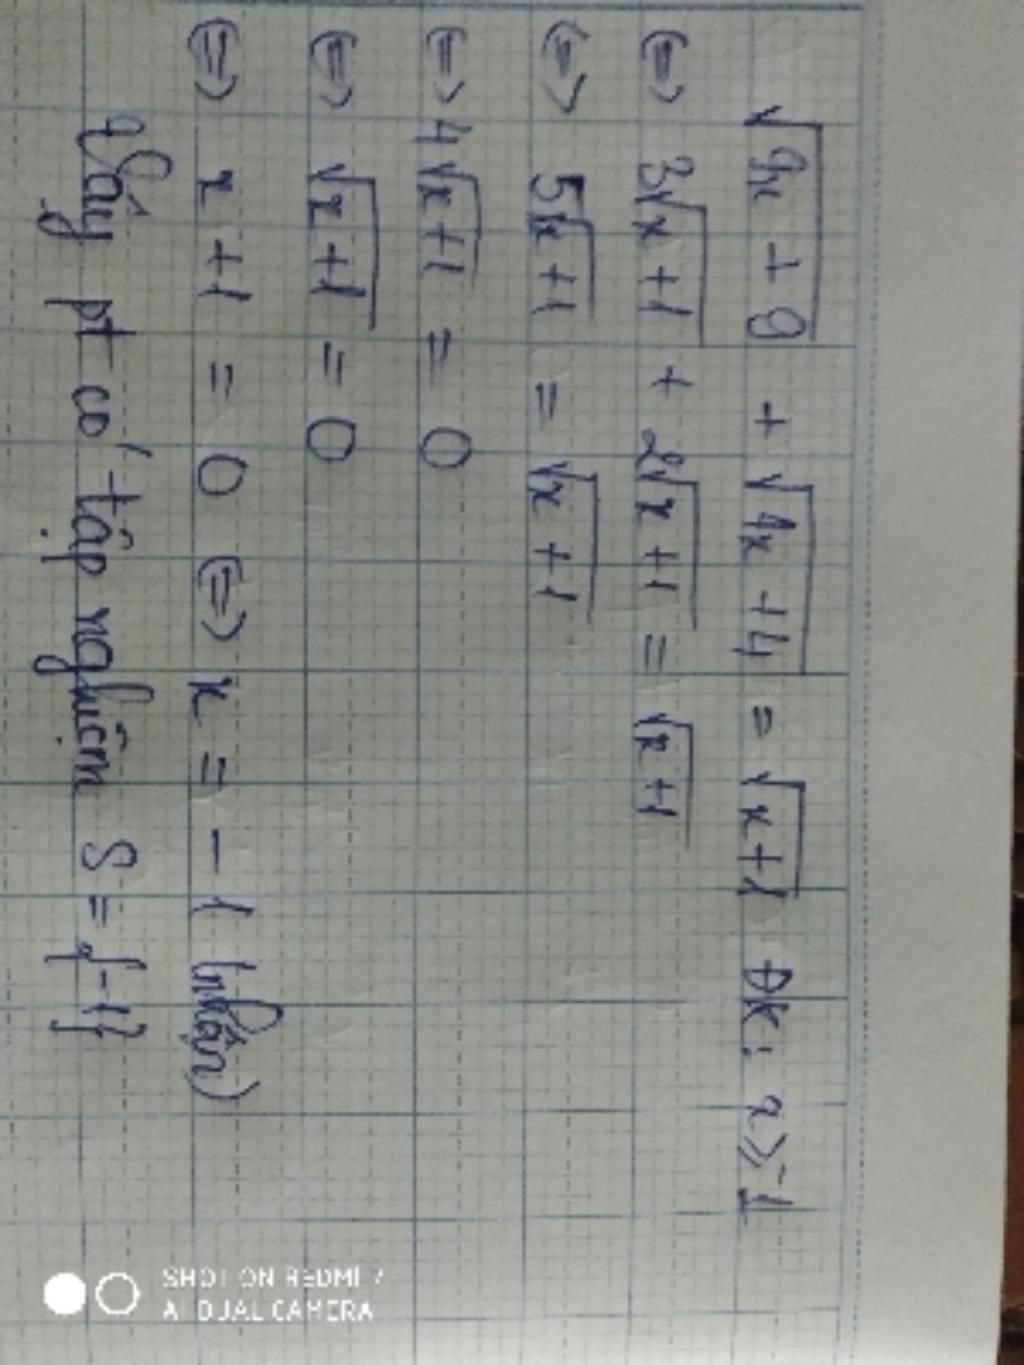 √(9x + 9) + √(4x + 4) = √(x + 1) ĐK: x ≥ -1
<=> 3√(x + 1) + 2√(x + 1) = √(x + 1)
<=> 5√(x + 1) = √(x + 1)
<=> 4√(x + 1) = 0
<=> √(x + 1) = 0
<=> x + 1 = 0 <=> x = -1 (nhận)
Vậy pt có tập nghiệm S = {-1}
SHOT ON REDMI 7
AI DUAL CAMERA